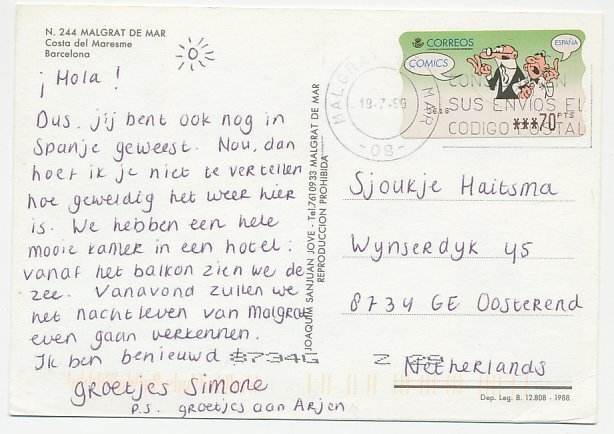 N. 244 MALGRAT DE MAR
Costa del Maresme
Barcelona
¡ Hola !
Dus, jij bent ook nog in
Spanje geweest. Nou, dan
hoef ik je niet te vertellen
hoe geweldig het weer hier
is. We hebben een hele
mooie kamer in een hotel:
vanaf het balkon zien we de
zee. Vanavond zullen we
het nachtleven van Malgrat
even gaan verkennen.
Ik ben benieuwd
groetjes Simone
P.S. groetjes aan Arjen
JOAQUIM SANJUAN JOVE - Tel.7610933 MALGRAT DE MAR
REPRODUCCION PROHIBIDA
CORREOS
ESPAÑA
COMICS
***70 PTS
MALGRA MAR
19-7-99
-08-
CON
SUS ENVIOS EL
CODIGO POSTAL
Sjoukje Haitsma
Wynserdyk 45
8734 GE Oosterend
Netherlands
8734G
Dep. Leg. B. 12.808 - 1988